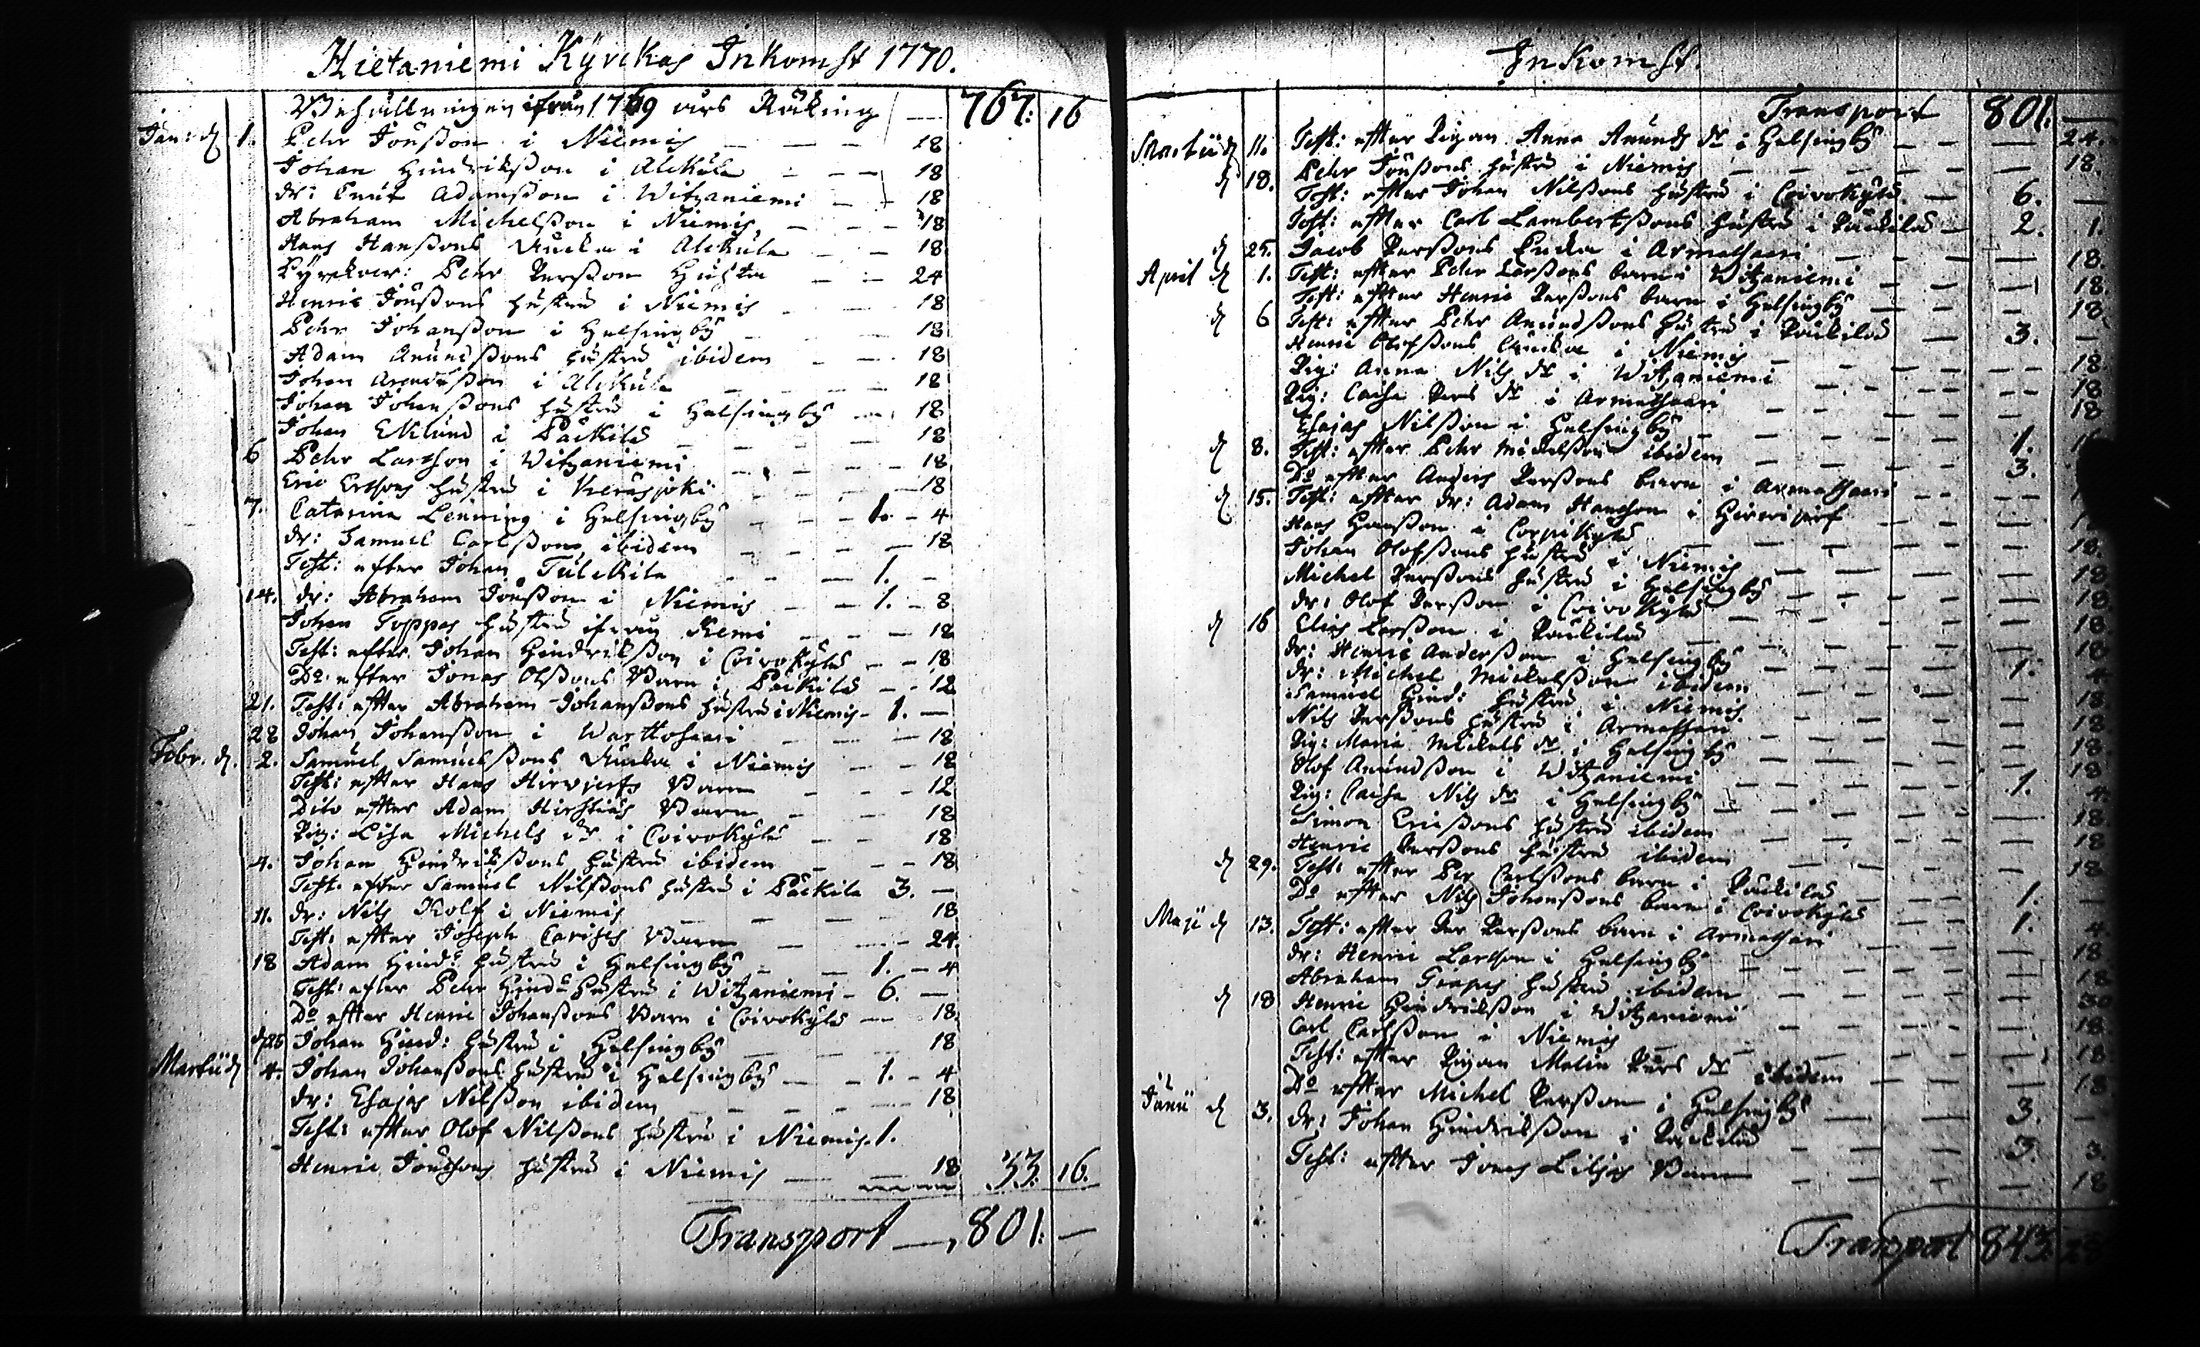 Hietaniemi Kyrckas Inkomst 1770.
Behållningen ifrån 1769 års Räkning — 767: 16
Jan: d 1. Pehr Jönsson i Niemis — — — 18
Johan Hindriksson i Alkula — — — 18
dr: Enut Adamsson i Witzaniemi — — 18
Abraham Michelsson i Niemis — — — 18
Hans Hanssons Encka i Alkula — — 18
Kyrckov: Pehr Persson — — 24
Henric Jönssons hustru i Niemis — — 18
Pehr Johansson i Helsingby — — 18
Adam Anundssons hustru ibidem — — 18
Johan i Alkula — — — 18
Johan Johanssons hustru i Helsingby — 18
Johan Eklund i Päckilä — — — 18
6 Pehr Larsson i Witzaniemi — — — 18
Eric Ersons hustru i Kieräsjoki — — 18
7. Catarina Lenning i Helsingby — — 1. — 4
dr: Samuel Carlsson ibidem — — — 18
Test: efter Johan — — 1. —
14. dr: Abraham Jönsson i Niemis — — 1. — 8
Johan Toppas hustru ifrån Kemi — — 18
Test: efter Johan Hindriksson i Coivokylä — — 18
Do efter Jonas Olssons Barn i Päckilä — — 12
21. Test: efter Abraham Johanssons hustru i Niemis — 1. —
28 Johan Johansson i Warttosaari — — — 18
Febr. d. 2. Samuel Samuelssons Encka i Niemis — — 18
Test: efter Hans Hirvjerfs Barn — — 12
Dito efter Adam Barn — — 18
Pig: Lisa Michels dr i Coivokylä — — 18
4. Johan Hindrikssons hustru ibidem — — — 18
Test: efter Samuel Nilssons hustru i Päckilä 3. —
11. dr: Nils Kolf i Niemis — — — 18
Test: efter Joseph Barn — — — 24
18 Adam Hind: hustru i Helsingby — — 1. — 4
Test: efter Pehr Hind: hustru i Witzaniemi — 6. —
Do efter Henric Johanssons Barn i Coivokylä — 18.
d 25 Johan Hind: hustru i Helsingby — — — 18
Martii d 4. Johan Johanssons hustru i Helsingby — — 1. — 4
dr: Esajas Nilsson ibidem — — — 18
Test: efter Olof Nilssons hustru i Niemis. 1.
Henric Jönssons hustru i Niemis — — 18 33. 16.
Transport —, 801: —
Inkomst.
Transport 801: —
Martii d 11. Test: efter Pigan Anna Anunds dr i Helsingby — — — 24.
d 18. Pehr Jönssons hustru i Niemis — — — 18.
Test: efter Johan Nilssons hustru i Coivokylä — 6. —
Test: efter Carl Lambertssons hustru i Päckilä — 2. 1.
d 25. Jacob Perssons Encka i Armassaari — — 18.
April d 1. Test: efter Pehr Larssons barn i Witzaniemi — — 18.
Test: efter Henric Perssons barn i Helsingby — — 18.
d 6 Test: efter Pehr Anundssons hustru i Päckilä — 3. —
Henric Olofssons Encka i Niemis — — 18.
Pig: Anna Nils dr i Witzaniemi — — 18
Pig: Caisa Pers dr i Armassaari — — 18
Esajas Nilsson i Helsingby — —
d 8. Test: efter Pehr Mickelsson ibidem — — 1.
Do efter Anders Perssons barn i Armassaari — 3.
d 15. Test: efter dr: Adam Hansson i
Hans Hansson i Corpikylä — —
Johan Olofssons hustru i Niemis — — 18.
Michel Perssons hustru i Helsingby — — 18
dr: Olof Persson i Coivokylä — — 18
d 16 Elias Larsson i Päckilä — — 18
dr: Henric Andersson i Helsingby — — 18
dr: Michel Mickelsson ibidem — — 1. 4
Samuel Hind: hustru i Niemis — — 18
Nils Perssons hustru i Armassaari — — 18
Pig: Maria Mickels dr i Helsingby — — 18
Olof Anundsson i Witzaniemi — — 18
Pig: Caisa Nils dr i Helsingby — — 1. 4.
Simon Ericssons hustru ibidem — — 18
Henric Perssons hustru ibidem — — 18
d 29. Test: efter Per Carlssons barn i Päckilä — — 18
Do efter Nils Johanssons barn i Coivokylä — — 1. —
Maji d 13. Test: efter Per Perssons barn i Armassaari — — 1. 4
dr: Henric Larsson i Helsingby — — 18
Abraham hustru ibidem — — 18
d 18 Henric Hindriksson i Witzaniemi — — 30
Carl Carlsson i Niemis — — 18
Test: efter Pigan Malin Pers dr ibidem — — 18
Do efter Michel Persson i Helsingby — — 18
Junii d 3. dr: Johan Hindriksson i Päckilä — — 3. —
Test: efter Jonas Liljas Barn — — 3. 3
18
Transport 843. 28